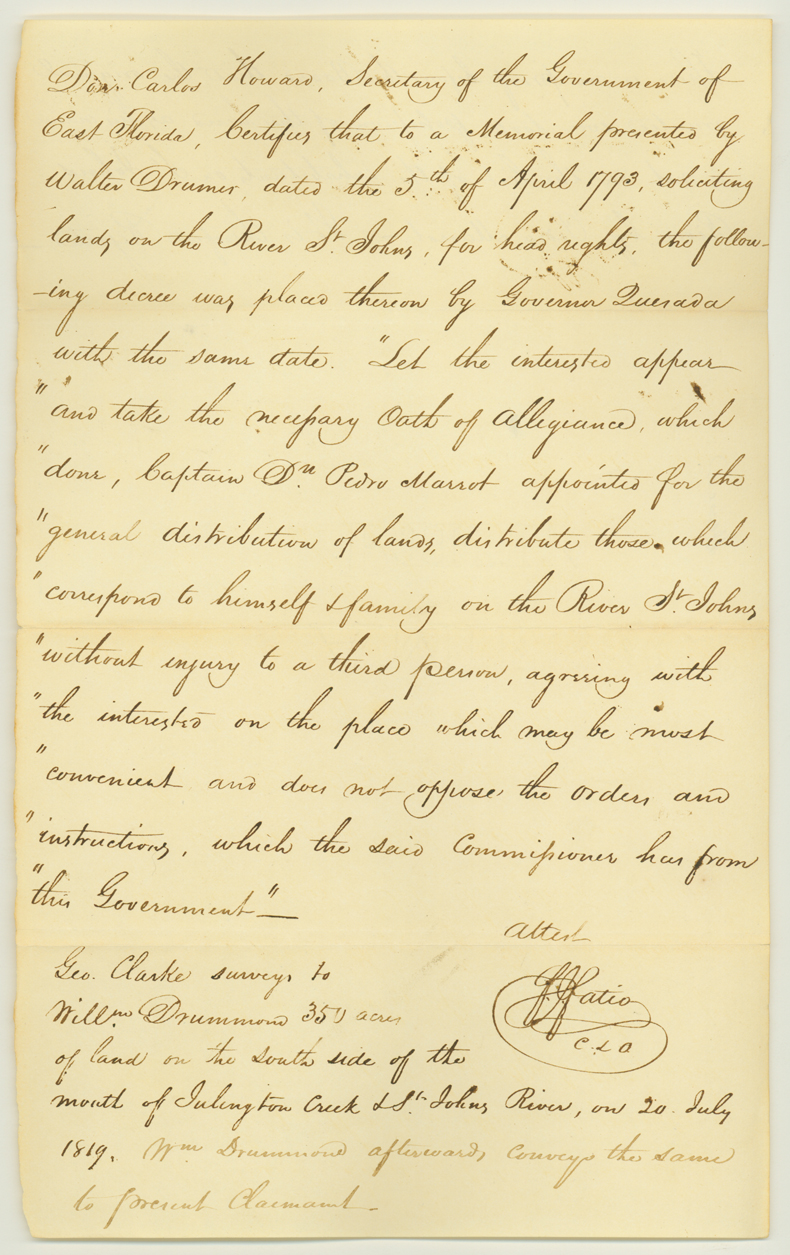 Don Carlos Howard, Secretary of the Government of
East Florida, Certifies that to a Memorial presented by
Walter Drumer, dated the 5th of April 1793, soliciting
lands on the River St. Johns, for head rights, the follow-
-ing decree was placed thereon by Governor Quesada
with the same date. "Let the interested appear
"and take the necessary Oath of Allegiance, which
"done, Captain Dn. Pedro Marrot appointed for the
"general distribution of lands, distribute those which
"correspond to himself & family on the River St. Johns
"without injury to a third person, agreeing with
"the interested on the place which may be most
"convenient and does not oppose the orders and
"instructions, which the said Commissioner has from
"this Government"—
Attest
F J Fatio
C. L O
Geo. Clarke surveys to
Willm Drummond 350 acres
of land on the south side of the
mouth of Julington Creek & St. Johns River, on 20 July
1819. Wm Drummond afterwards conveys the same
to present Claimant.